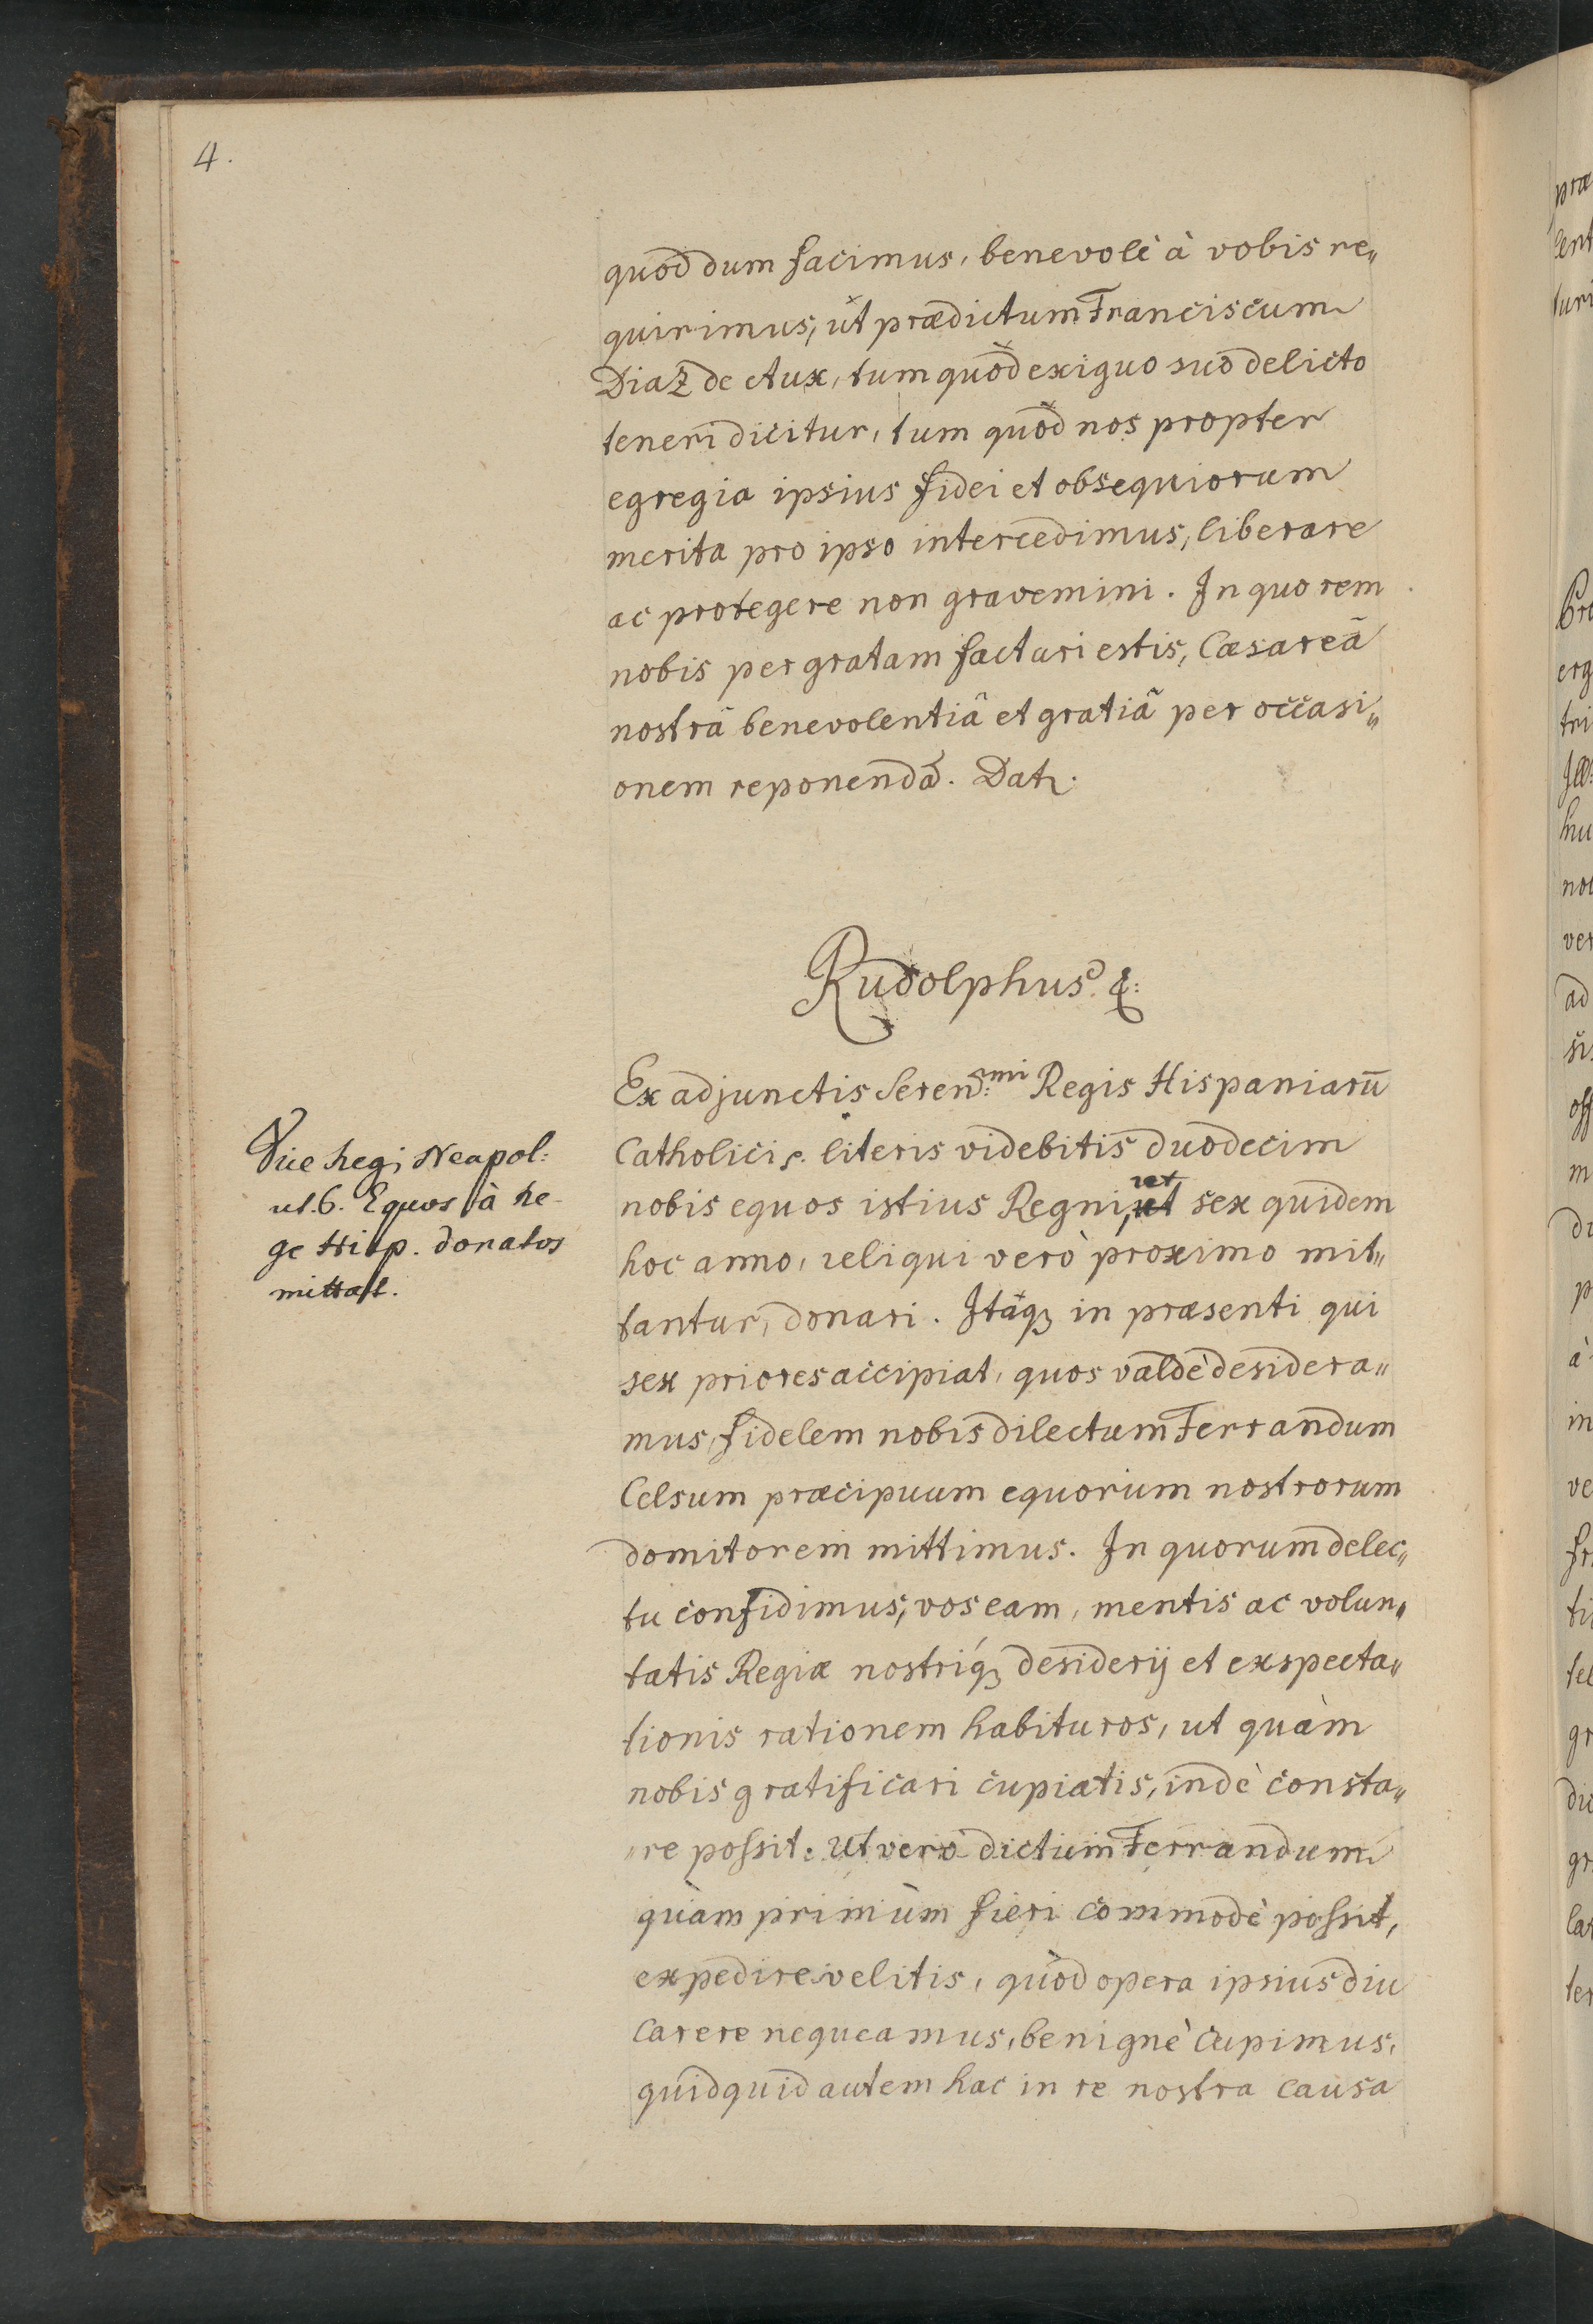 4.
quod dum facimus, benevolè à vobis re„
quirimus, ut prædictum Franciscum
Diaz de Aux, tum quòd exiguo suo delicto
teneri dicitur, tum quòd nos propter
egregia ipsius fidei et obsequiorum
merita pro ipso intercedimus, liberare
ac protegere non gravemini. In quo rem
nobis pergratam facturi estis, Cæsareâ
nostrâ benevolentiâ et gratiâ per occasi„
onem reponendâ. Dat.
Rudolphus &:
Ex adjunctis Seren:mi Regis Hispaniarū
Catholici literis videbitis duodecim
nobis equos istius Regni, ut sex quidem
hoc anno, reliqui verò proximo mit„
tantur, donari. Itaq; in præsenti qui
sex priores accipiat, quos valdè desidera„
mus, fidelem nobis dilectum Ferrandum
Celsum præcipuum equorum nostrorum
domitorem mittimus. In quorum delec„
tu confidimus, vos eam, mentis ac volun„
tatis Regiæ nostriq; desiderij et exspecta„
tionis rationem habituros, ut quàm
nobis gratificari cupiatis, indè consta„
„re possit. Ut verò dictum Ferrandum
quàm primùm fieri commodè possit,
expedire velitis, quòd opera ipsius diu
carere nequeamus, benignè cupimus,
quidquid autem hac in re nostra causa
Vice Regi Neapol:
ut 6. Equos à Re-
ge Hisp. donatos
mittat.